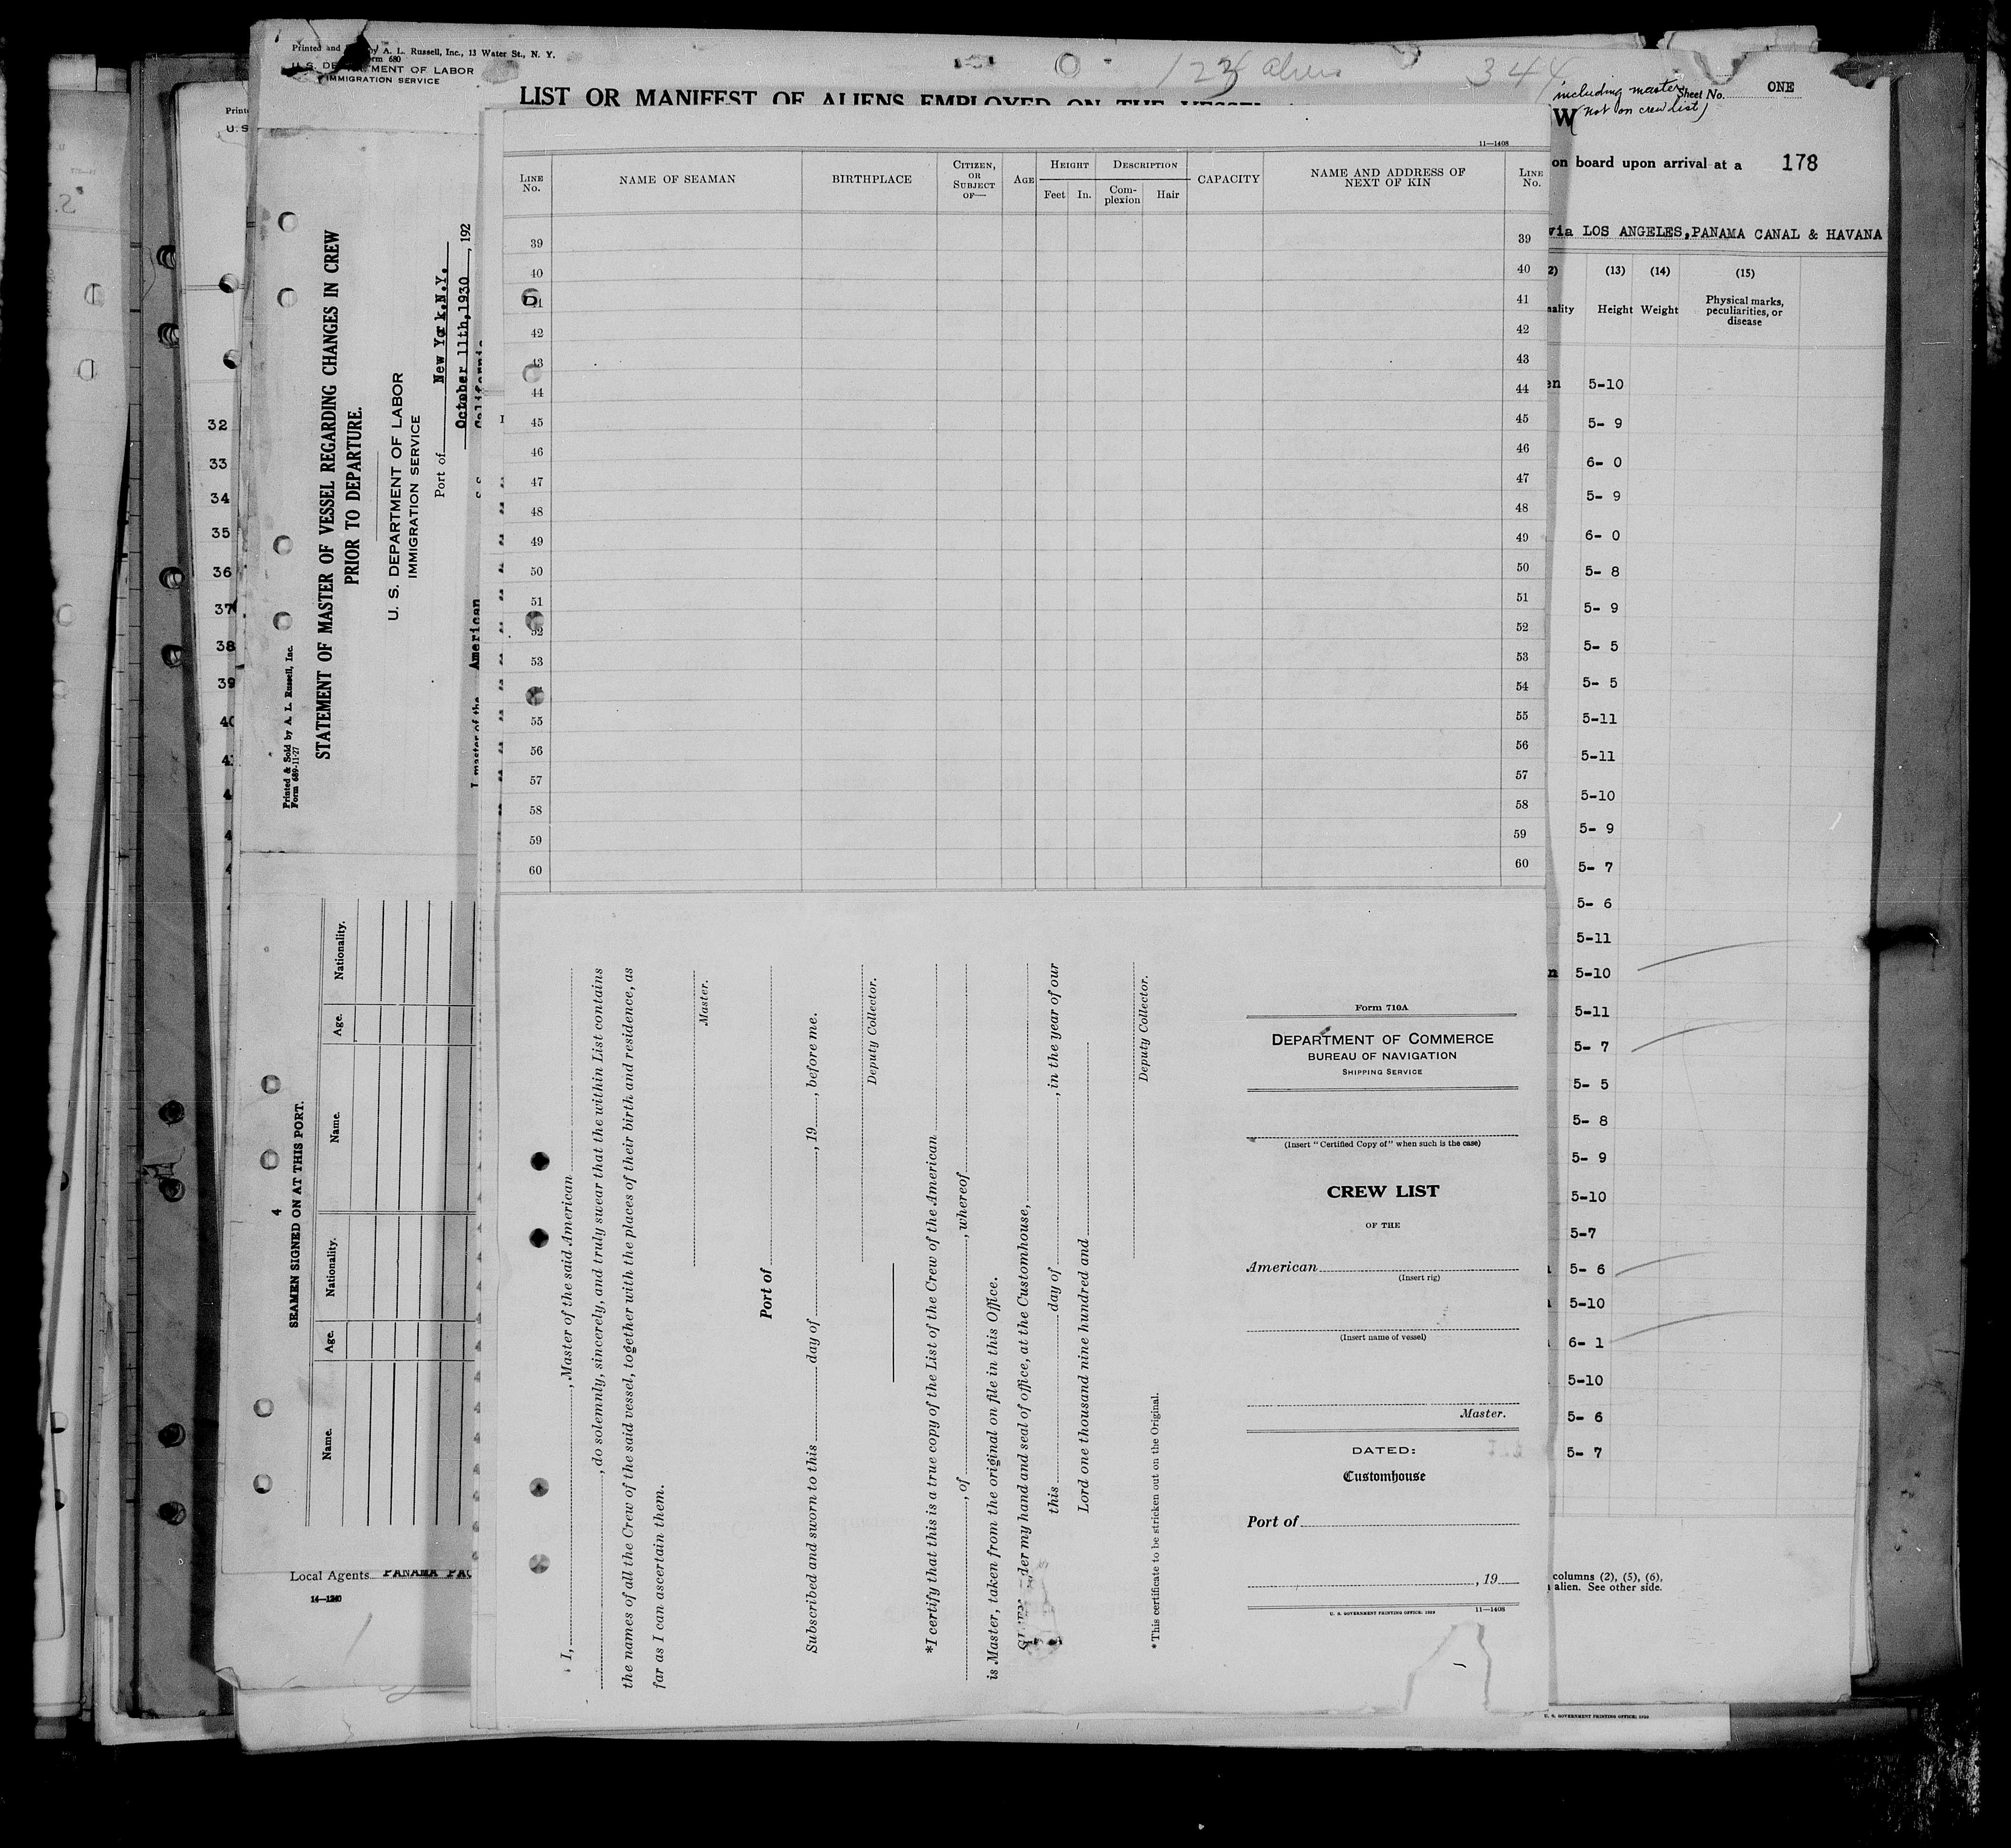 Printed and by A. L. Russell, Inc., 13 Water St., N. Y.
Form 680
U. S. DEPARTMENT OF LABOR
IMMIGRATION SERVICE
123 aliens
344
LIST OR MANIFEST OF ALIENS EMPLOYED ON THE VESSEL
including master
not on crew list)
Sheet No. ONE
W
on board upon arrival at a 178
via LOS ANGELES, PANAMA CANAL & HAVANA
(13) (14) (15)
Height Weight Physical marks, peculiarities, or disease
en 5-10
5- 9
6- 0
5- 9
6- 0
5- 8
5- 9
5- 5
5- 5
5-11
5-11
5-10
5- 9
5- 7
5- 6
5-11
n 5-10
5-11
5- 7
5- 5
5- 8
5- 9
5-10
5-7
5- 6
5-10
6- 1
5-10
5- 6
5- 7
columns (2), (5), (6),
alien. See other side.
U. S. GOVERNMENT PRINTING OFFICE: 1930
U.S
32
33
34
35
36
37
38
39
Printed & Sold by A. L. Russell, Inc.
Form 689-11-27
STATEMENT OF MASTER OF VESSEL REGARDING CHANGES IN CREW
PRIOR TO DEPARTURE.
U. S. DEPARTMENT OF LABOR
IMMIGRATION SERVICE
Port of New York, N.Y.
October 11th, 1930, 192
S. S. California
I master of the American
4
SEAMEN SIGNED ON AT THIS PORT.
Name. Age. Nationality. Name. Age. Nationality.
Local Agents PANAMA PAC
14—1240
11—1408
LINE No. NAME OF SEAMAN BIRTHPLACE CITIZEN, OR SUBJECT OF— AGE HEIGHT DESCRIPTION CAPACITY NAME AND ADDRESS OF NEXT OF KIN LINE No.
Feet In. Complexion Hair
39 39
40 40
41 41
42 42
43 43
44 44
45 45
46 46
47 47
48 48
49 49
50 50
51 51
52 52
53 53
54
55 55
56 56
57 57
58 58
59 59
60 60
I, , Master of the said American
, do solemnly, sincerely, and truly swear that the within List contains
the names of all the Crew of the said vessel, together with the places of their birth and residence, as
far as I can ascertain them.
Master.
Port of
Subscribed and sworn to this day of , 19 , before me.
Deputy Collector.
*I certify that this is a true copy of the List of the Crew of the American
, of , whereof
is Master, taken from the original on file in this Office.
der my hand and seal of office, at the Customhouse,
this day of , in the year of our
Lord one thousand nine hundred and
Deputy Collector.
*This certificate to be stricken out on the Original.
Form 710A
DEPARTMENT OF COMMERCE
BUREAU OF NAVIGATION
SHIPPING SERVICE
(Insert "Certified Copy of" when such is the case)
CREW LIST
OF THE
American
(Insert rig)
(Insert name of vessel)
Master.
DATED:
Customhouse
Port of
, 19
U. S. GOVERNMENT PRINTING OFFICE: 11—1408